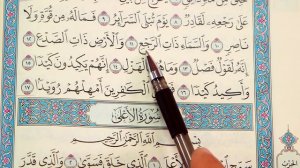 عَلَىٰ رَجْعِهِۦ لَقَادِرٌ ٨ يَوْمَ تُبْلَى ٱلسَّرَآئِرُ ٩ فَمَا لَهُۥ مِن قُوَّةٍ وَلَا
نَاصِرٍ ١٠ وَٱلسَّمَآءِ ذَاتِ ٱلرَّجْعِ ١١ وَٱلْأَرْضِ ذَاتِ ٱلصَّدْعِ ١٢
إِنَّهُۥ لَقَوْلٌ فَصْلٌ ١٣ وَمَا بِٱلْهَزْلِ ١٤ إِنَّهُمْ يَكِيدُونَ كَيْدًا ١٥
وَأَكِيدُ كَيْدًا ١٦ ٱلْكَٰفِرِينَ أَمْهِلْهُمْ رُوَيْدًۢا ١٧
سُورَةُ الأَعْلَىٰ
بِسْمِ ٱللَّهِ ٱلرَّحْمَٰنِ ٱلرَّحِيمِ
سَبِّحِ ٱسْمَ ٱلَّذِى خَلَقَ فَسَوَّىٰ ٢ وَٱلَّذِى قَدَّرَ